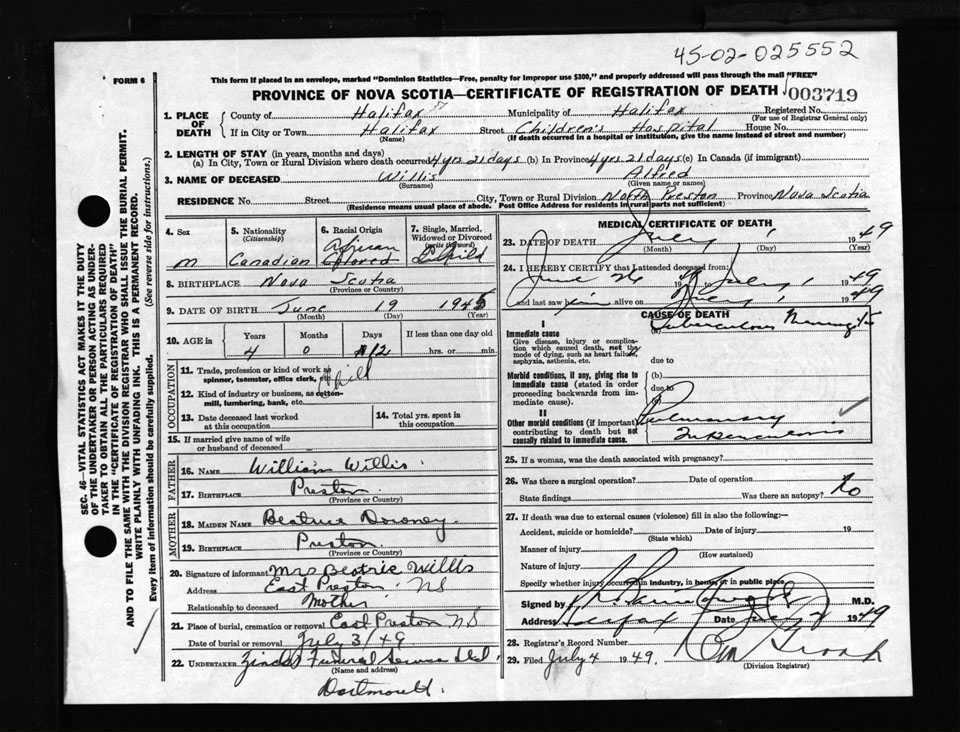 45-02-025552
FORM 6
This form if placed in an envelope, marked "Dominion Statistics—Free, penalty for improper use $300," and properly addressed will pass through the mail "FREE"
PROVINCE OF NOVA SCOTIA—CERTIFICATE OF REGISTRATION OF DEATH 003719
1. PLACE OF DEATH
County of Halifax Municipality of Halifax Registered No.
(For use of Registrar General only)
If in City or Town Halifax Street Children's Hospital House No.
(Name) (If death occurred in a hospital or institution, give the name instead of street and number)
2. LENGTH OF STAY (in years, months and days)
(a) In City, Town or Rural Division where death occurred 4 yrs 21 days (b) In Province 4 yrs 21 days (c) In Canada (if immigrant)
3. NAME OF DECEASED Willis Alfred
(Surname) (Given name or names)
RESIDENCE No. Street City, Town or Rural Division North Preston Province Nova Scotia
(Residence means usual place of abode. Post Office Address for residents in rural parts not sufficient)
4. Sex m
5. Nationality (Citizenship) Canadian
6. Racial Origin African Colored
7. Single, Married, Widowed or Divorced (write the word) Child
8. BIRTHPLACE Nova Scotia
(Province or Country)
9. DATE OF BIRTH June 19 1945
(Month) (Day) (Year)
10. AGE in Years Months Days If less than one day old
4 0 12 hrs. or min.
OCCUPATION
11. Trade, profession or kind of work as spinner, teamster, office clerk, etc. Child
12. Kind of industry or business, as cotton-mill, lumbering, bank, etc.
13. Date deceased last worked at this occupation
14. Total yrs. spent in this occupation
15. If married give name of wife or husband of deceased
FATHER
16. NAME William Willis
17. BIRTHPLACE Preston
(Province or Country)
MOTHER
18. MAIDEN NAME Beatrice Downey
19. BIRTHPLACE Preston
(Province or Country)
20. Signature of informant Mrs Beatrie Willis
Address East Preston NS
Relationship to deceased Mother
21. Place of burial, cremation or removal East Preston NS
Date of burial or removal July 3/49
22. UNDERTAKER Zinck's Funeral Service Ltd.
(Name and address)
Dartmouth.
MEDICAL CERTIFICATE OF DEATH
23. DATE OF DEATH July 1 1949
(Month) (Day) (Year)
24. I HEREBY CERTIFY that I attended deceased from:
June 1949 to July 1 1949
and last saw him alive on July 1, 1949
CAUSE OF DEATH
I
Immediate cause (a) Tuberculous Meningitis
Give disease, injury or complication which caused death, not the mode of dying, such as heart failure, asphyxia, asthenia, etc. due to
Morbid conditions, if any, giving rise to immediate cause (stated in order proceeding backwards from immediate cause). (b)
due to
II
Other morbid conditions (if important) contributing to death but not causally related to immediate cause. Pulmonary
Tuberculosis
25. If a woman, was the death associated with pregnancy?
26. Was there a surgical operation? Date of operation
State findings Was there an autopsy? No
27. If death was due to external causes (violence) fill in also the following:—
Accident, suicide or homicide? Date of injury 19
(State which)
Manner of injury
(How sustained)
Nature of injury
Specify whether injury occurred in industry, in home, or in public place
Signed by M.D.
Address Halifax Date July 1949
28. Registrar's Record Number
29. Filed July 4 1949.
(Division Registrar)
SEC. 46—VITAL STATISTICS ACT MAKES IT THE DUTY
OF THE UNDERTAKER OR PERSON ACTING AS UNDER-
TAKER TO OBTAIN ALL THE PARTICULARS REQUIRED
IN THE "CERTIFICATE OF REGISTRATION OF DEATH"
AND TO FILE THE SAME WITH THE DIVISION REGISTRAR WHO SHALL ISSUE THE BURIAL PERMIT.
WRITE PLAINLY WITH UNFADING INK. THIS IS A PERMANENT RECORD.
Every item of information should be carefully supplied. (See reverse side for instructions.)